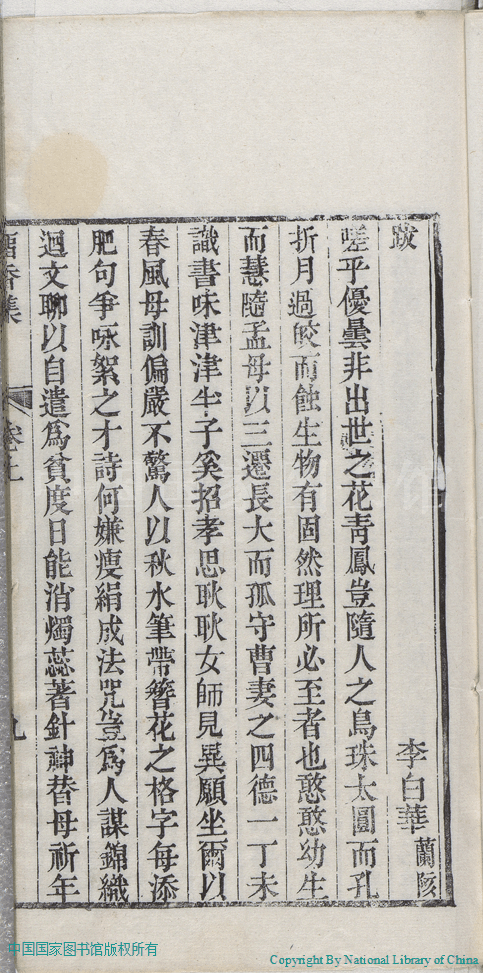 跋
李白華 蘭陔
嗟乎優曇非出世之花靑鳳豈隨人之鳥珠太圓而孔
折月過皎而蝕生物有固然理所必至者也憨憨幼生
而慧隨孟母以三遷長大而孤守曹妻之四德一丁未
識書味津津半子奚招孝思耿耿女師見異願坐爾以
春風母訓偏嚴不驚人以秋水筆帶簪花之格字每添
肥句爭咏絮之才詩何嫌瘦絹成法咒豈爲人謀錦織
迴文聊以自遣爲貧度日能消燭蕊著針神替母祈年
香集
卷上
九
中国国家图书馆版权所有
Copyright By National Library of China